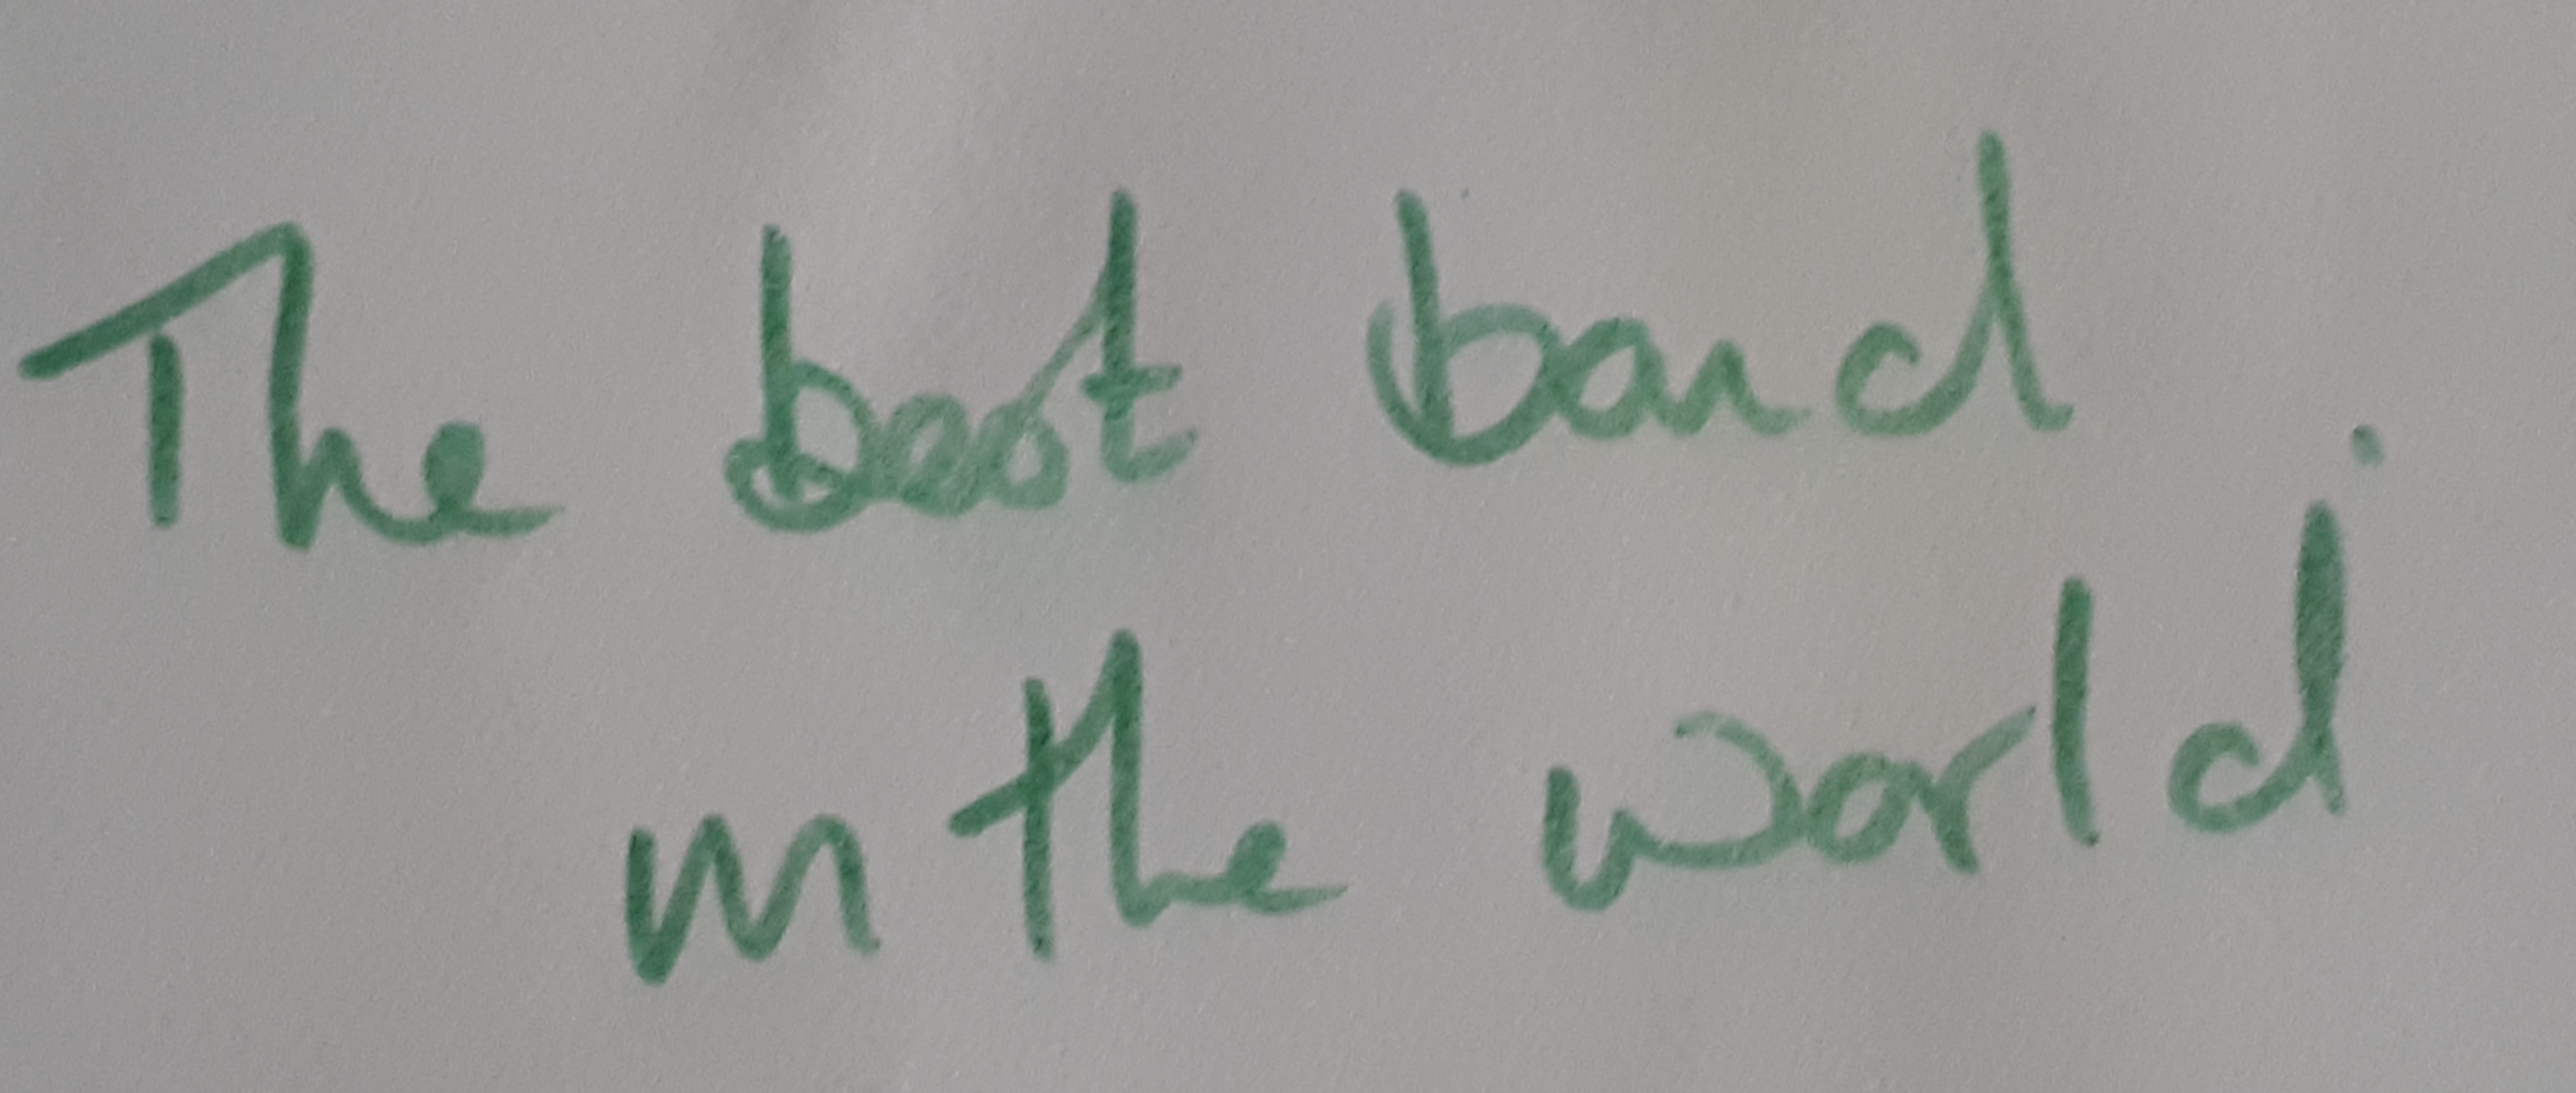 The best band
in the world